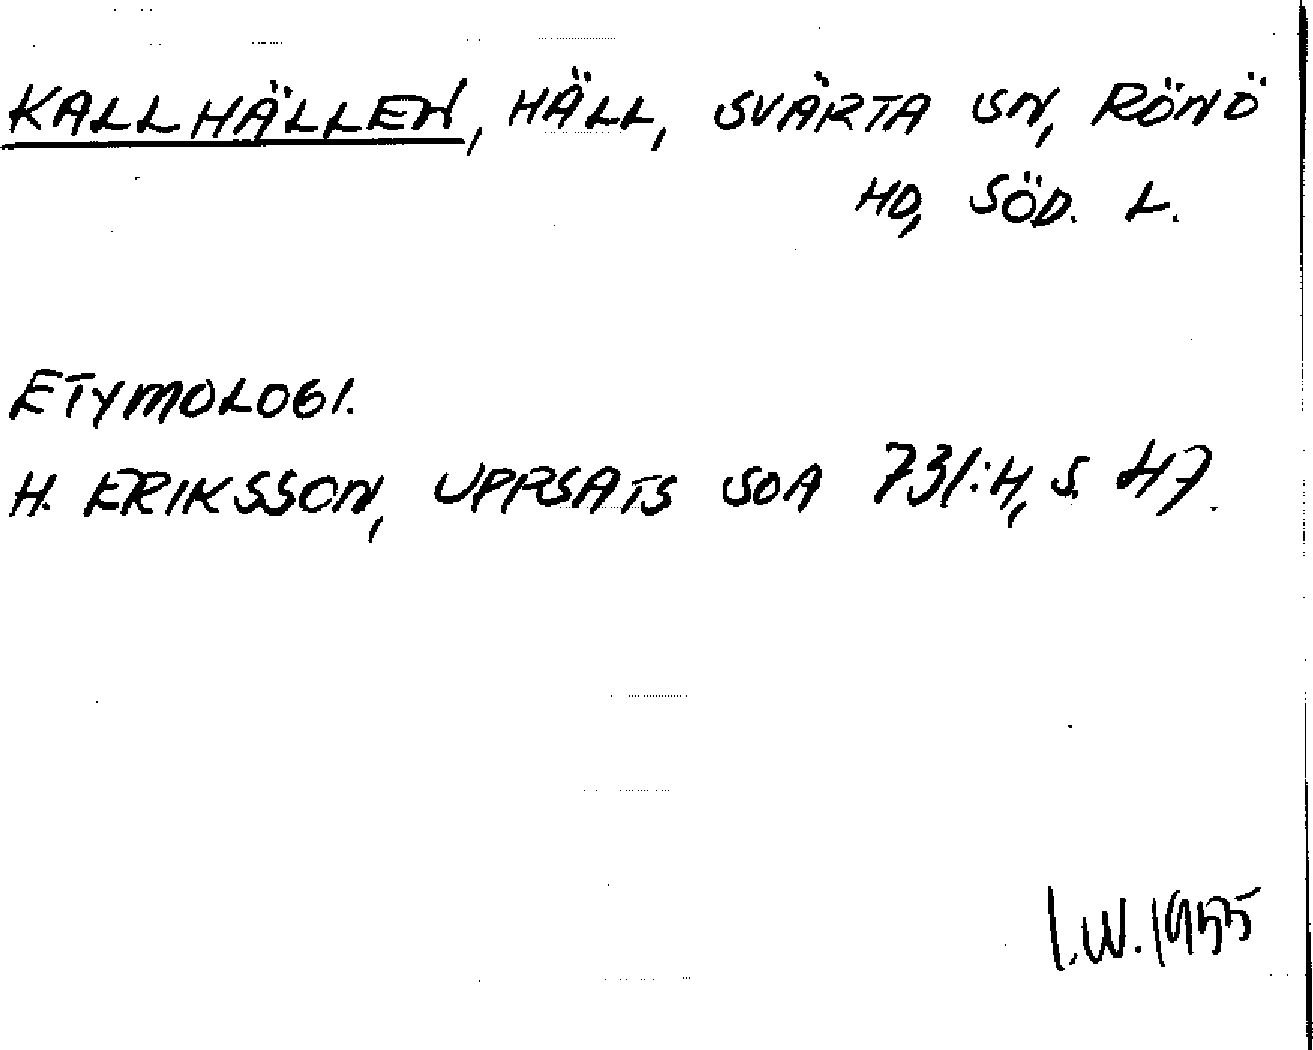 KALLHÄLLEN, HÄLL, SVÄRTA SN, RÖNÖ
HD, SÖD. L.
ETYMOLOGI.
H. ERIKSSON, UPPSATS SOA 731:4, S. 47.
I.W. 1955